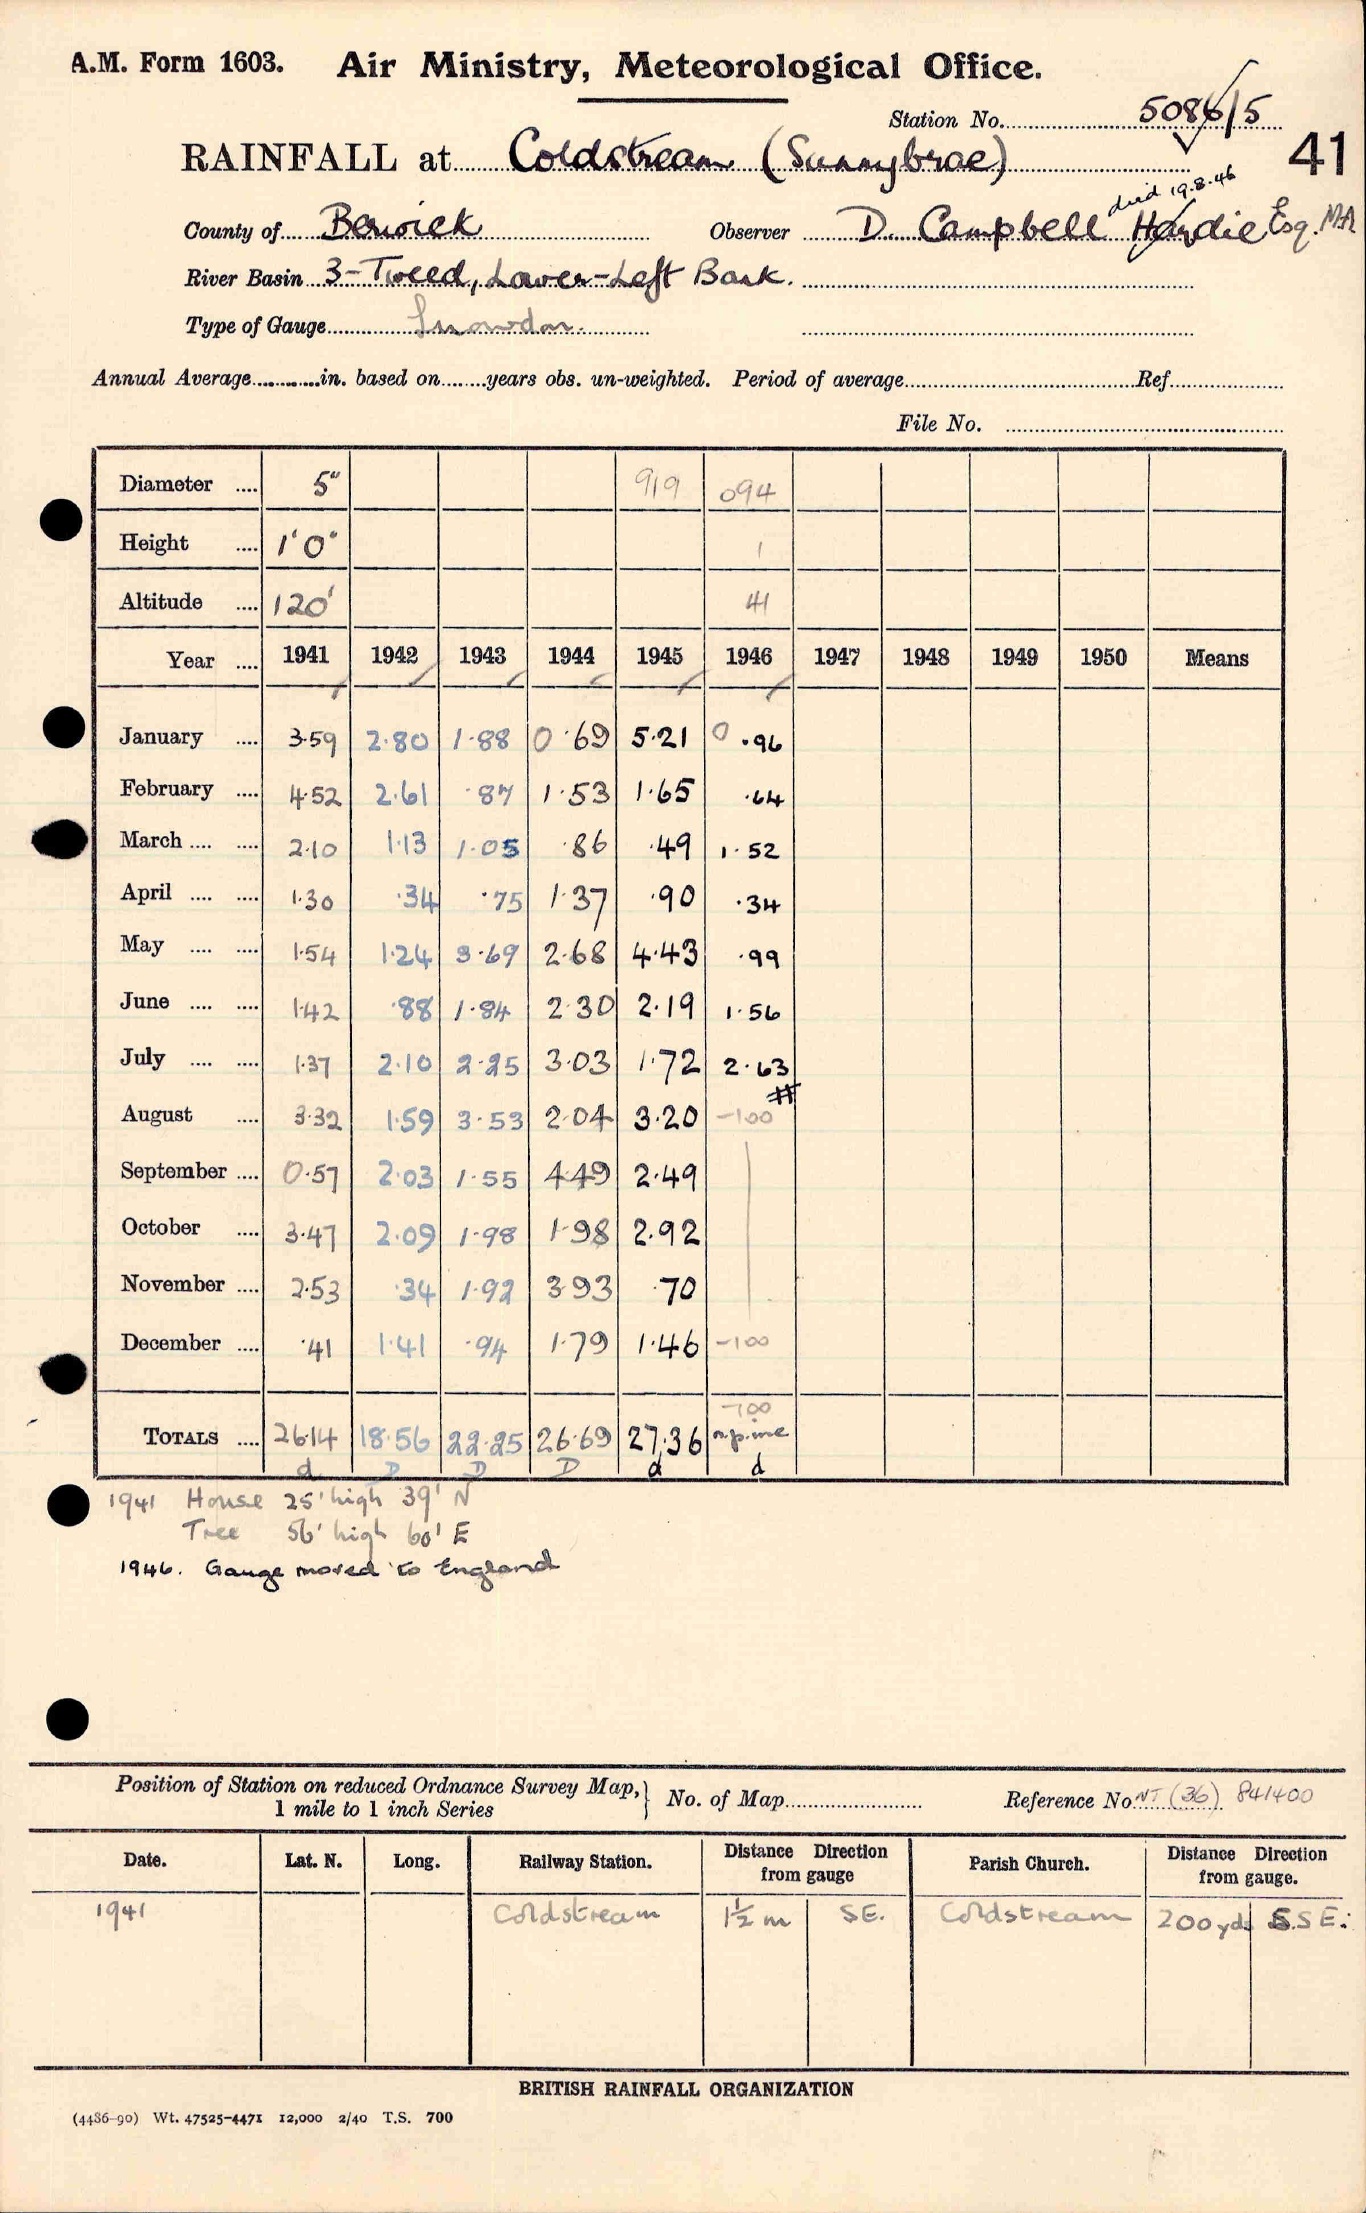 A.M. Form 1603. Air Ministry, Meteorological Office.
Station No. 5086/5
RAINFALL at Coldstream (Sunnybrae) 41
died 19.8.46
County of Berwick Observer D. Campbell Hardie Esq. M.A
River Basin 3-Tweed, Lower-Left Bank.
Type of Gauge Snowdon.
Annual Average in. based on years obs. un-weighted. Period of average Ref.
File No.
Diameter 5" 919 094
Height 1'0" 1
Altitude 120' 41
Year 1941 1942 1943 1944 1945 1946 1947 1948 1949 1950 Means
January 3.59 2.80 1.88 0.69 5.21 0.96
February 4.52 2.61 .87 1.53 1.65 .64
March 2.10 1.13 1.05 .86 .49 1.52
April 1.30 .34 .75 1.37 .90 .34
May 1.54 1.24 3.69 2.68 4.43 .99
June 1.42 .88 1.84 2.30 2.19 1.56
July 1.37 2.10 2.25 3.03 1.72 2.63
#
August 3.32 1.59 3.53 2.04 3.20 -100
September 0.57 2.03 1.55 4.49 2.49
October 3.47 2.09 1.98 1.98 2.92
November 2.53 .34 1.92 3.93 .70
December .41 1.41 .94 1.79 1.46 -100
-700
TOTALS 26.14 18.56 22.25 26.69 27.36
d D D D d d
1941 House 25' high 39' N
Tree 56' high 60' E
1946. Gauge moved to England
Position of Station on reduced Ordnance Survey Map, } No. of Map Reference No. NT (36) 841400
1 mile to 1 inch Series
Date. Lat. N. Long. Railway Station. Distance Direction from gauge Parish Church. Distance Direction from gauge.
1941 Coldstream 1½ m SE. Coldstream 200 yds S.S.E.
BRITISH RAINFALL ORGANIZATION
(4486-90) Wt. 47525-4471 12,000 2/40 T.S. 700